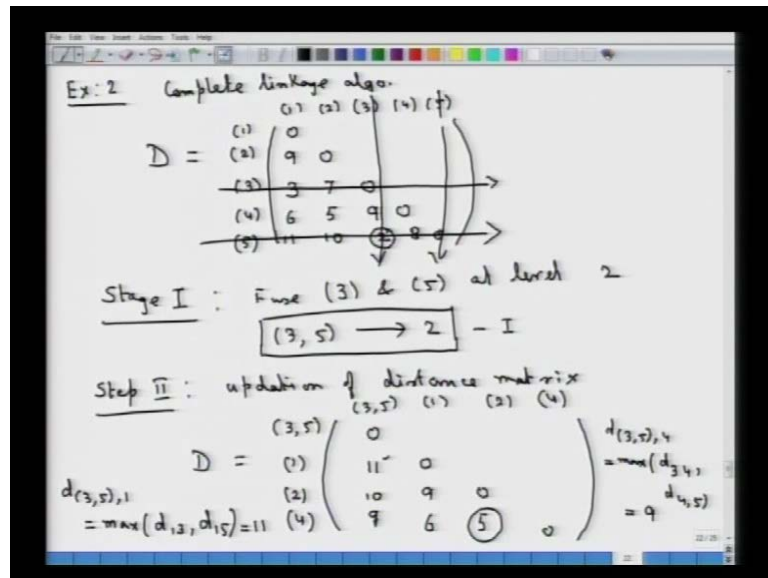 File Edit View Insert Actions Tools Help
Ex: 2 Complete linkage algo.
(1) (2) (3) (4) (5)
(1) 0
D = (2) 9 0
(3) 3 7 0
(4) 6 5 9 0
(5) 11 10 2 8 0
Stage I : Fuse (3) & (5) at level 2
(3, 5) → 2 - I
Step II : updation of distance matrix
(3,5) (1) (2) (4)
(3,5) 0
D = (1) 11 0
(2) 10 9 0
(4) 9 6 5 0
d(3,5),1
= max(d13, d15) = 11
d(3,5),4
= max(d34,
d4,5)
= 9
22/25